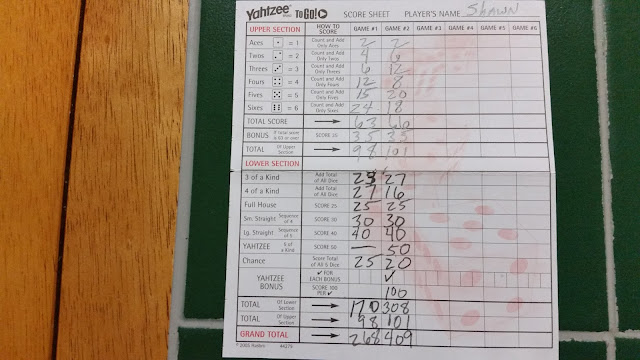 Yahtzee TO GO! SCORE SHEET PLAYER'S NAME Shawn
UPPER SECTION HOW TO SCORE GAME #1 GAME #2 GAME #3 GAME #4 GAME #5 GAME #6
Aces = 1 Count and Add Only Aces 2 2
Twos = 2 Count and Add Only Twos 4 6
Threes = 3 Count and Add Only Threes 6 12
Fours = 4 Count and Add Only Fours 12 8
Fives = 5 Count and Add Only Fives 15 20
Sixes = 6 Count and Add Only Sixes 24 18
TOTAL SCORE → 63 66
BONUS If total score is 63 or over SCORE 35 35 35
TOTAL Of Upper Section → 98 101
LOWER SECTION
3 of a Kind Add Total of All Dice 23 27
4 of a Kind Add Total of All Dice 27 16
Full House SCORE 25 25 25
Sm. Straight Sequence of 4 SCORE 30 30 30
Lg. Straight Sequence of 5 SCORE 40 40 40
YAHTZEE 5 of a Kind SCORE 50 — 50
Chance Score Total of All 5 Dice 25 20
YAHTZEE BONUS ✓ FOR EACH BONUS ✓
SCORE 100 PER ✓ 100
TOTAL Of Lower Section → 170 308
TOTAL Of Upper Section → 98 101
GRAND TOTAL → 268 409